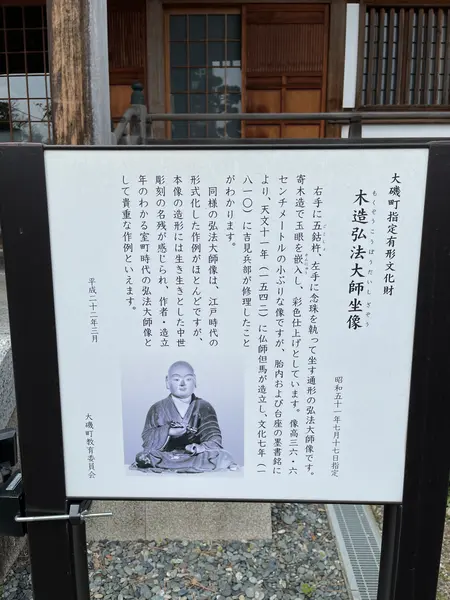 大磯町指定有形文化財
もくぞうこうぼうだいしざぞう
木造弘法大師坐像
昭和五十一年七月十七日指定
右手に五鈷杵、左手に念珠を執って坐す通形の弘法大師像です。
寄木造で玉眼を嵌入し、彩色仕上げとしています。像高三六・六
センチメートルの小ぶりな像ですが、胎内および台座の墨書銘に
より、天文十一年（一五四二）に仏師但馬が造立し、文化七年（一
八一〇）に吉見兵部が修理したこと
がわかります。
同様の弘法大師像は、江戸時代の
形式化した作例がほとんどですが、
本像の造形には生き生きとした中世
彫刻の名残が感じられ、作者・造立
年のわかる室町時代の弘法大師像と
して貴重な作例といえます。
平成二十二年三月
大磯町教育委員会